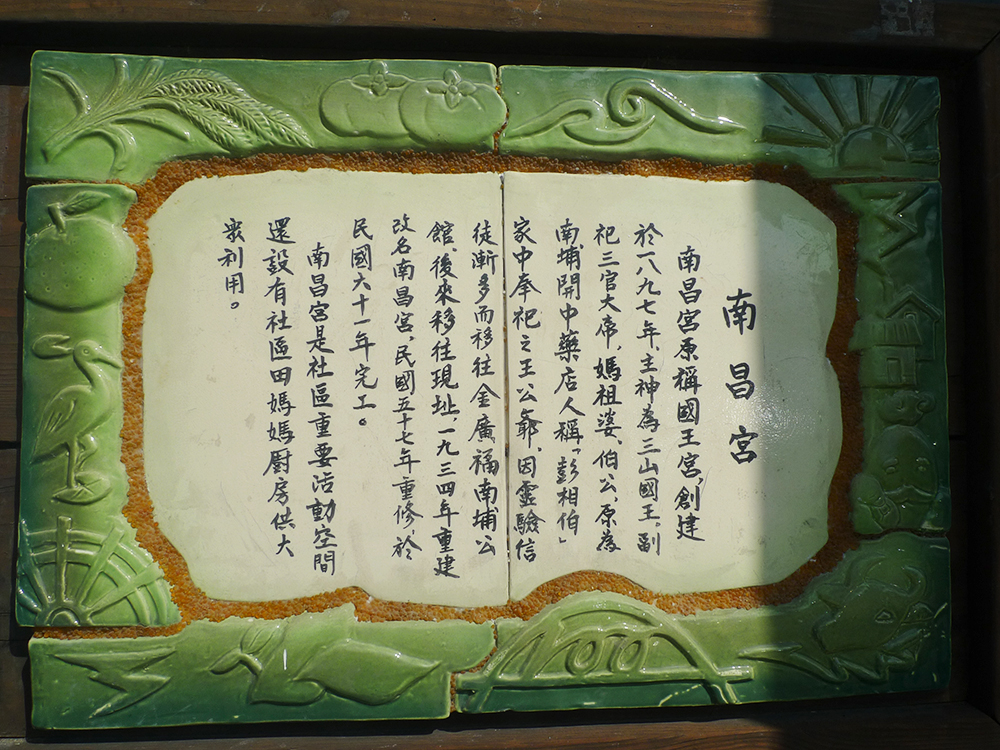 南昌宮
南昌宮原稱國王宮,創建
於一八九七年,主神為三山國王,副
祀三官大帝,媽祖婆、伯公,原為
南埔開中藥店人稱「彭相伯」
家中奉祀之王公爺,因靈驗信
徒漸多而移往金廣福南埔公
館,後來移往現址,一九三四年重建
改名南昌宮,民國五十七年重修於
民國六十一年完工。
南昌宮是社區重要活動空間
還設有社區田媽媽廚房供大
眾利用。